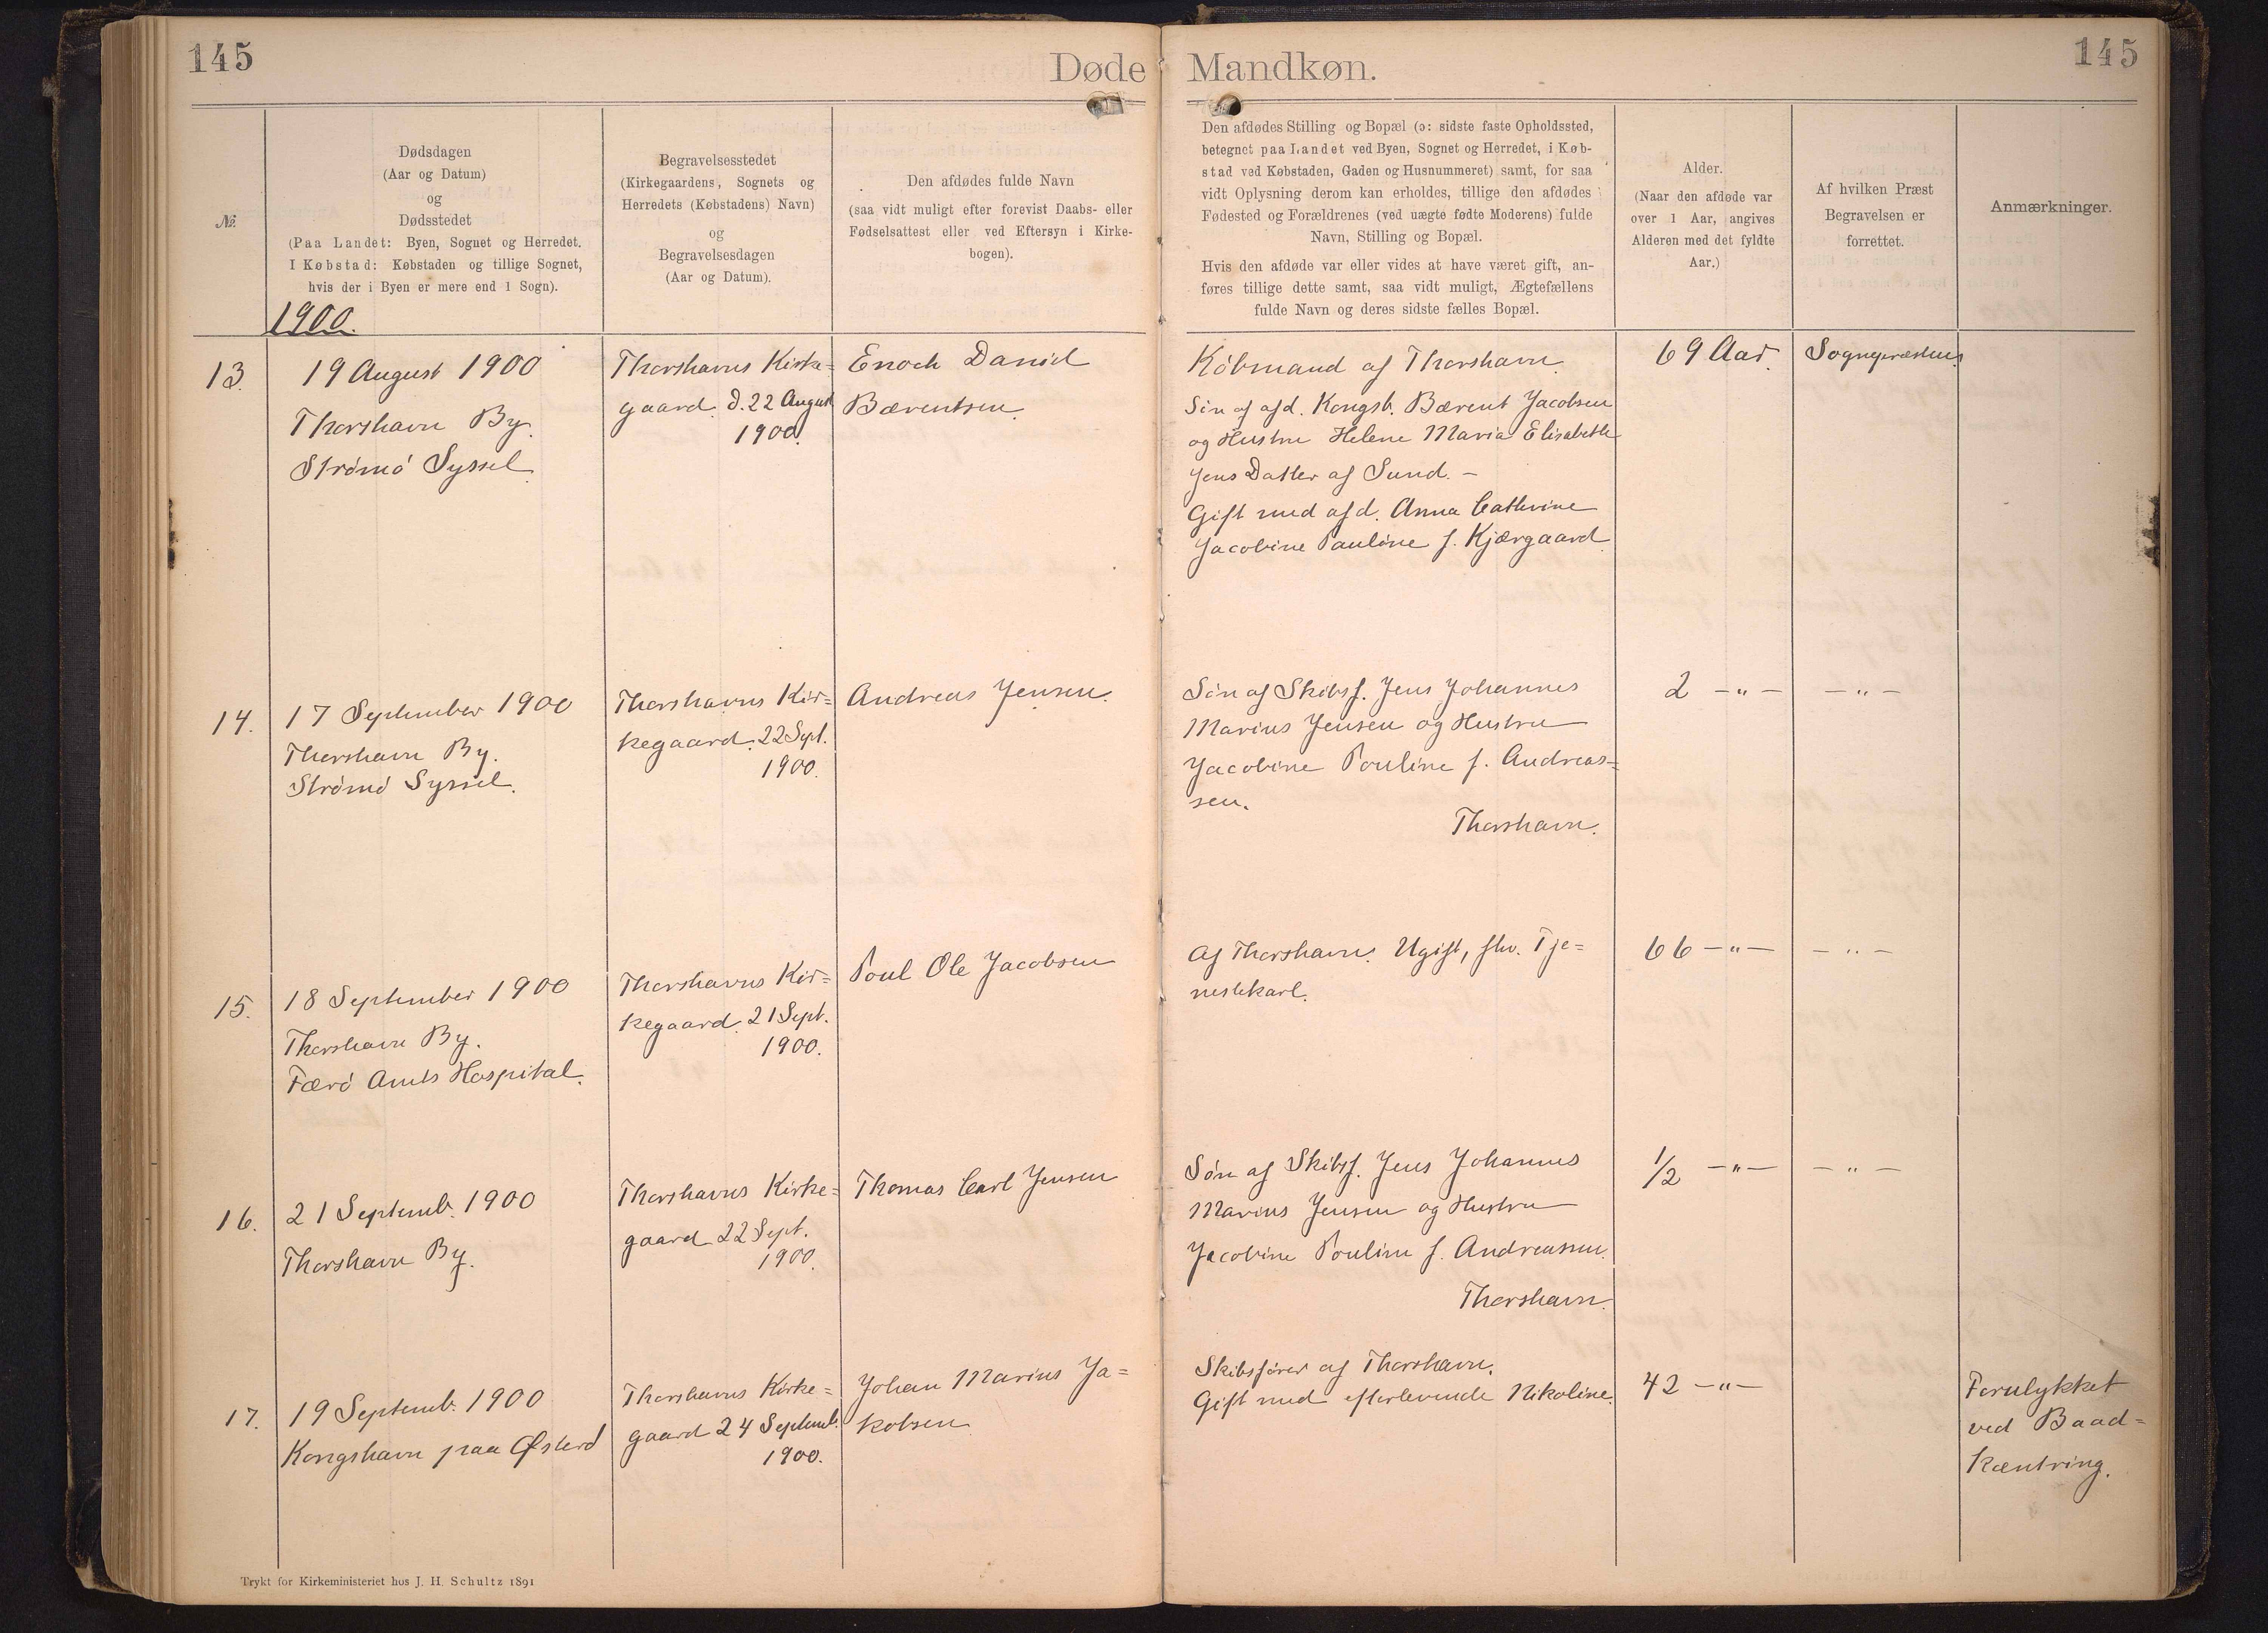 145
Døde Mandkøn.
145
№
Dødsdagen
(Aar og Datum)
og
Dødsstedet
(Paa Landet: Byen, Sognet og Herredet.
I Købstad: Købstaden og tillige Sognet,
hvis der i Byen er mere end 1 Sogn).
Begravelsesstedet
(Kirkegaardens, Sognets og
Herredets (Købstadens) Navn)
og
Begravelsesdagen
(Aar og Datum).
Den afdødes fulde Navn
(saa vidt muligt efter forevist Daabs- eller
Fødselsattest eller ved Eftersyn i Kirke-
bogen).
Den afdødes Stilling og Bopæl (ɔ: sidste faste Opholdssted,
betegnet paa Landet ved Byen, Sognet og Herredet, i Køb-
stad ved Købstaden, Gaden og Husnummeret) samt, for saa
vidt Oplysning derom kan erholdes, tillige den afdødes
Fødested og Forældrenes (ved uægte fødte Moderens) fulde
Navn, Stilling og Bopæl.
Hvis den afdøde var eller vides at have været gift, an-
føres tillige dette samt, saa vidt muligt, Ægtefællens
fulde Navn og deres sidste fælles Bopæl.
Alder.
(Naar den afdøde var
over 1 Aar, angives
Alderen med det fyldte
Aar.)
Af hvilken Præst
Begravelsen er
forrettet.
Anmærkninger.
1900.
13.
19 August 1900
Thorshavn By.
Strømø Syssel.
Thorshavns Kirke=
gaard. d. 22 August
1900.
Enoch Daniel
Bærentsen.
Købmand af Thorshavn.
Søn af afd. Kongsb. Bærent Jacobsen
og Hustru Helene Maria Elisabeth
Jens Datter af Sund. –
Gift med afd. Anna Cathrine
Jacobine Pauline f. Kjærgaard.
69 Aar.
Sognepræsten.
14.
17 September 1900
Thorshavn By.
Strømø Syssel.
Thorshavns Kir=
kegaard. 22 Sept.
1900.
Andreas Jensen.
Søn af Skibsf. Jens Johannes
Marius Jensen og Hustru
Jacobine Pouline f. Andreas=
sen.
Thorshavn.
2 – " –
– " –
15.
18 September 1900
Thorshavn By.
Færø Amts Hospital.
Thorshavns Kir=
kegaard. 21 Sept.
1900.
Poul Ole Jacobsen
Af Thorshavn. Ugift, fhv. Tje=
nestekarl.
66 – " –
– " –
16.
21 Septemb. 1900
Thorshavn By.
Thorshavns Kirke=
gaard 22 Sept.
1900.
Thomas Carl Jensen
Søn af Skibsf. Jens Johannes
Marius Jensen og Hustru
Jacobine Pouline f. Andreassen.
Thorshavn.
1/2 – " –
– " –
17.
19 Septemb. 1900
Kongshavn paa Østerø
Thorshavns Kirke=
gaard 24 Septemb.
1900.
Johan Marius Ja=
kobsen
Skibsfører af Thorshavn.
Gift med efterlevende Nikoline.
42 – " –
Forulykket
ved Baad=
kæntring.
Trykt for Kirkeministeriet hos J. H. Schultz 1891